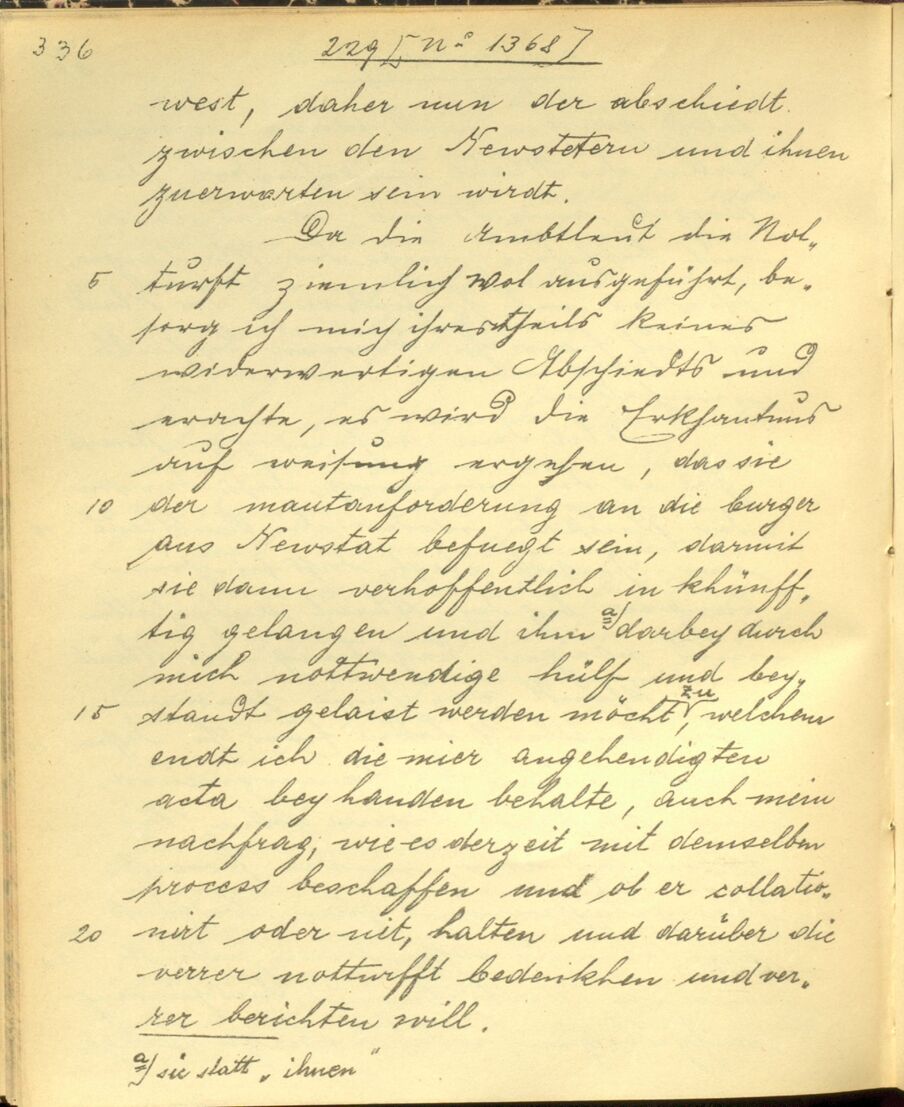 336
229 [No 1368]
west, daher nun der abschiedt
zwischen den Newstetern und ihnen
zuerwarten sein wirdt.
Da die Ambtleut die Not„
5 turfft ziemlich wol ausgeführt, be„
sorg ich mich ihrestheils keines
widerwertigen Abschiedts und
erachte, es wird die Erkhantnus
auf weisung ergehen, das sie
10 der mautanforderung an die burger
aus Newstat befuegt sein, darmit
sie dann verhoffentlich in khünff„
tig gelangen und ihm a) darbey durch
mich nottwendige hülf und bey„
15 standt gelaist werden möcht, zu welchem
endt ich die mier angehendigten
acta bey handen behalte, auch mein
nachfrag, wie es derzeit mit demselben
process beschaffen und ob er collatio„
20 nirt oder nit, halten und darüber die
verrer notturfft bedenkhen und ver„
rer berichten will.
a) sic statt „ihnen“